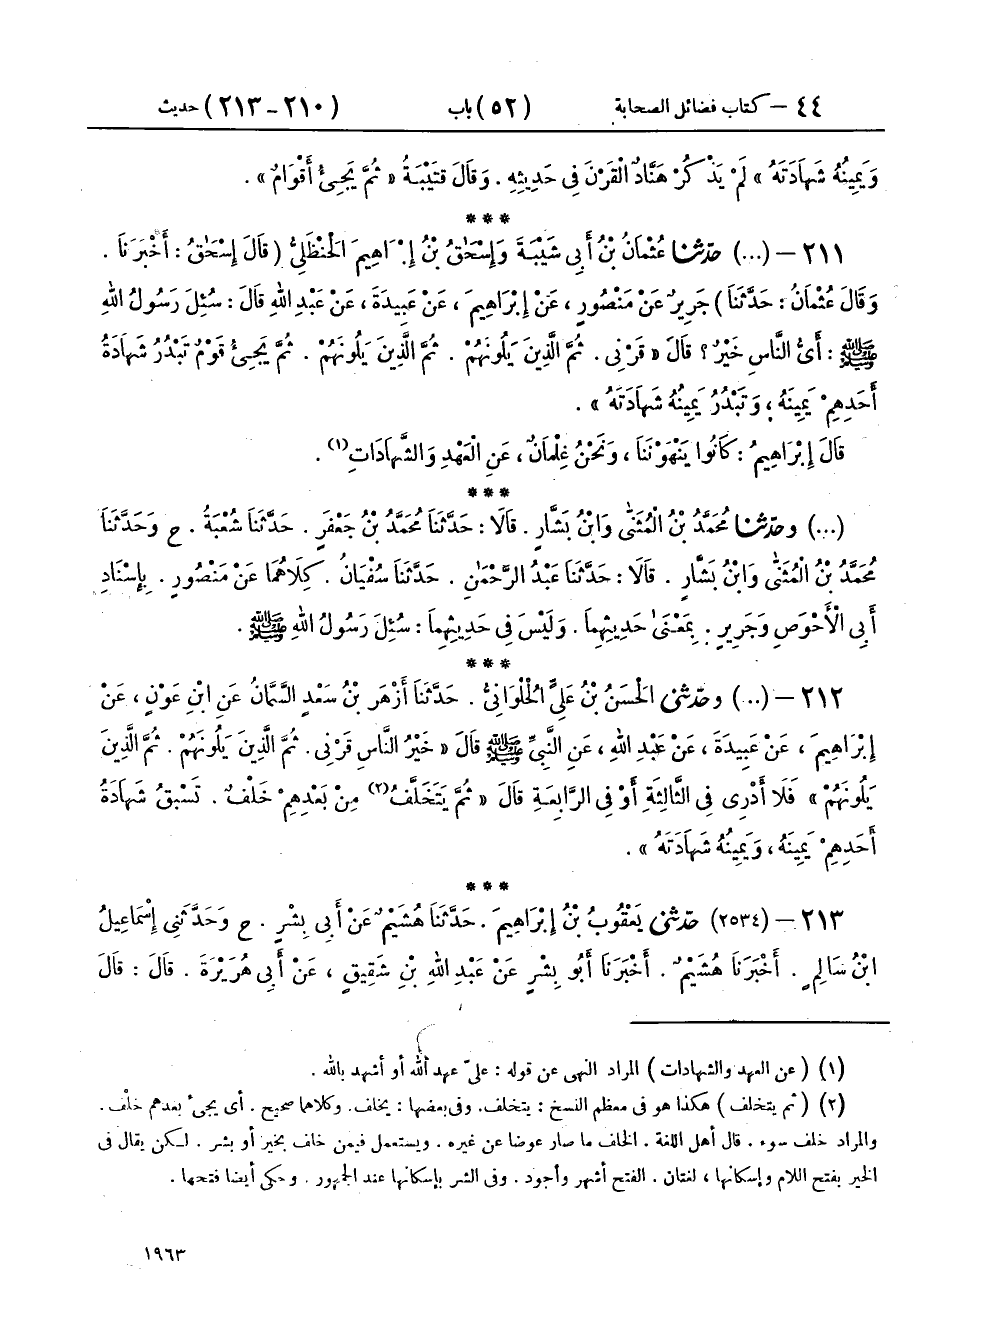 ٤٤ – كتاب فضائل الصحابة (٥٢) باب (٢١٠-٢١٣) حديث
وَيَمِينُهُ شَهَادَتَهُ » لَمْ يَذْكُرْ هَنَّادٌ الْقَرْنَ فِي حَدِيثِهِ . وَقَالَ قُتَيْبَةُ « ثُمَّ يَجِيءُ أَقْوَامٌ » .
***
٢١١ – (...) حدّثنا عُثْمَانُ بْنُ أَبِي شَيْبَةَ وَإِسْحَقُ بْنُ إِبْرَاهِيمَ الْحَنْظَلِيُّ ( قَالَ إِسْحَقُ : أَخْبَرَنَا .
وَقَالَ عُثْمَانُ : حَدَّثَنَا ) جَرِيرٌ عَنْ مَنْصُورٍ ، عَنْ إِبْرَاهِيمَ ، عَنْ عَبِيدَةَ ، عَنْ عَبْدِ اللهِ قَالَ : سُئِلَ رَسُولُ اللهِ
ﷺ : أَيُّ النَّاسِ خَيْرٌ ؟ قَالَ « قَرْنِي . ثُمَّ الَّذِينَ يَلُونَهُمْ . ثُمَّ الَّذِينَ يَلُونَهُمْ . ثُمَّ يَجِيءُ قَوْمٌ تَبْدُرُ شَهَادَةُ
أَحَدِهِمْ يَمِينَهُ ، وَتَبْدُرُ يَمِينُهُ شَهَادَتَهُ » .
قَالَ إِبْرَاهِيمُ : كَانُوا يَنْهَوْنَنَا ، وَنَحْنُ غِلْمَانٌ ، عَنِ الْعَهْدِ وَالشَّهَادَاتِ (١) .
***
(...) وحدّثنا مُحَمَّدُ بْنُ الْمُثَنَّى وَابْنُ بَشَّارٍ . قَالَا : حَدَّثَنَا مُحَمَّدُ بْنُ جَعْفَرٍ . حَدَّثَنَا شُعْبَةُ . ح وَحَدَّثَنَا
مُحَمَّدُ بْنُ الْمُثَنَّى وَابْنُ بَشَّارٍ . قَالَا : حَدَّثَنَا عَبْدُ الرَّحْمَنِ . حَدَّثَنَا سُفْيَانُ . كِلَاهُمَا عَنْ مَنْصُورٍ . بِإِسْنَادِ
أَبِي الْأَحْوَصِ وَجَرِيرٍ . بِمَعْنَى حَدِيثِهِمَا . وَلَيْسَ فِي حَدِيثِهِمَا : سُئِلَ رَسُولُ اللهِ ﷺ .
***
٢١٢ – (...) وحدّثني الْحَسَنُ بْنُ عَلِيٍّ الْحُلْوَانِيُّ . حَدَّثَنَا أَزْهَرُ بْنُ سَعْدٍ السَّمَّانُ عَنِ ابْنِ عَوْنٍ ، عَنْ
إِبْرَاهِيمَ ، عَنْ عَبِيدَةَ ، عَنْ عَبْدِ اللهِ ، عَنِ النَّبِيِّ ﷺ قَالَ « خَيْرُ النَّاسِ قَرْنِي . ثُمَّ الَّذِينَ يَلُونَهُمْ . ثُمَّ الَّذِينَ
يَلُونَهُمْ » فَلَا أَدْرِي فِي الثَّالِثَةِ أَوْ فِي الرَّابِعَةِ قَالَ « ثُمَّ يَتَخَلَّفُ (٢) مِنْ بَعْدِهِمْ خَلْفٌ . تَسْبِقُ شَهَادَةُ
أَحَدِهِمْ يَمِينَهُ ، وَيَمِينُهُ شَهَادَتَهُ » .
***
٢١٣ – (٢٥٣٤) حدّثني يَعْقُوبُ بْنُ إِبْرَاهِيمَ . حَدَّثَنَا هُشَيْمٌ عَنْ أَبِي بِشْرٍ . ح وَحَدَّثَنِي إِسْمَاعِيلُ
ابْنُ سَالِمٍ . أَخْبَرَنَا هُشَيْمٌ . أَخْبَرَنَا أَبُو بِشْرٍ عَنْ عَبْدِ اللهِ بْنِ شَقِيقٍ ، عَنْ أَبِي هُرَيْرَةَ . قَالَ : قَالَ
(١) ( عن العهد والشهادات ) المراد النهي عن قوله : عليّ عهد الله أو أشهد بالله .
(٢) ( ثم يتخلف ) هكذا هو في معظم النسخ : يتخلف. وفي بعضها : يخلف. وكلاهما صحيح . أي يجيء بعدهم خلف .
والمراد خلف سوء . قال أهل اللغة . الخلف ما صار عوضا عن غيره . ويستعمل فيمن خلف بخير أو بشر . لكن يقال في
الخير بفتح اللام وإسكانها ، لغتان . الفتح أشهر وأجود . وفي الشر بإسكانها عند الجمهور . وحكي أيضا فتحها .
١٩٦٣